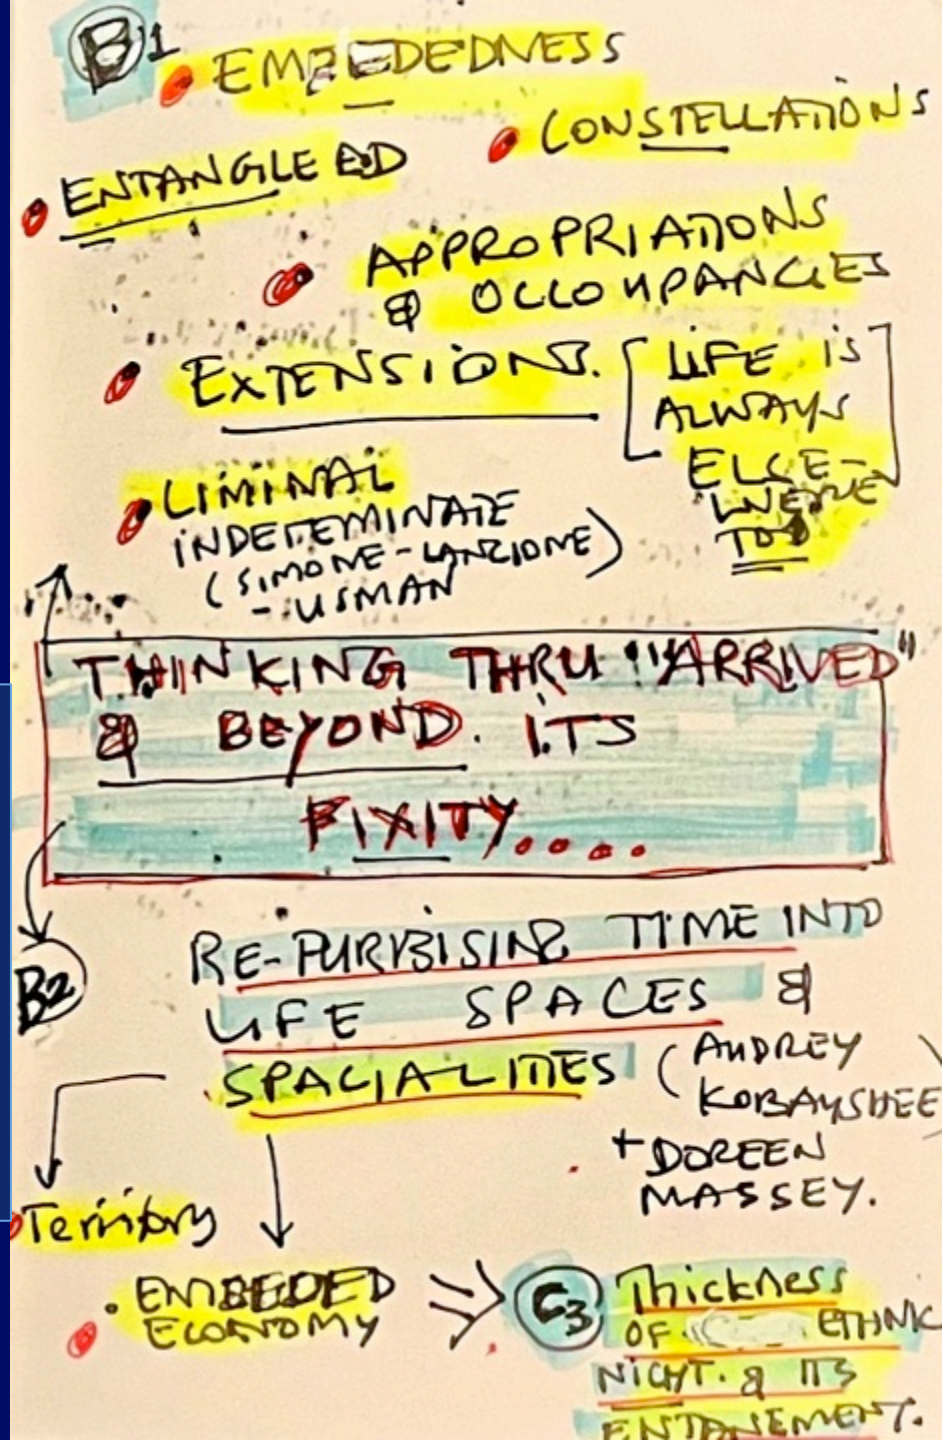 B1
EMBEDEDNESS
CONSTELLATIONS
ENTANGLEED
APPROPRIATIONS
& OCCOUPANCIES
EXTENSIONS. [LIFE IS
ALWAYS
ELSE-
WHERE
TOO]
LIMINAL
INDETEMINATE
(SIMONE-LANCIONE)
- USMAN
THINKING THRU "ARRIVED"
& BEYOND. ITS
FIXITY....
B2
RE-PURPOSISING TIME INTO
LIFE SPACES &
SPACIALITIES (AUDREY
KOBAYSHEE)
+ DOREEN
MASSEY.
Territory
EMBEDED
ECONOMY
C3 Thickness
OF ETHNIC
NIGHT. & ITS
ENTANEMENT.